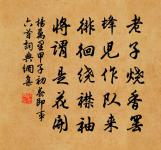 老子燒香罷
蜂兒作隊來
徘徊繞襟袖
將謂是花開
楊萬里甲子初春即事
六首詞典網書